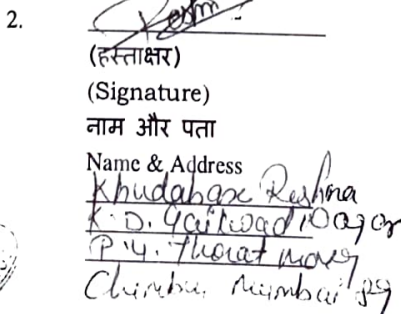 2.
(हस्ताक्षर)
(Signature)
नाम और पता
Name & Address
Khudabase Reshma
K. D. Gaikwad
P. Y. Thorat marg
Mumbai 89